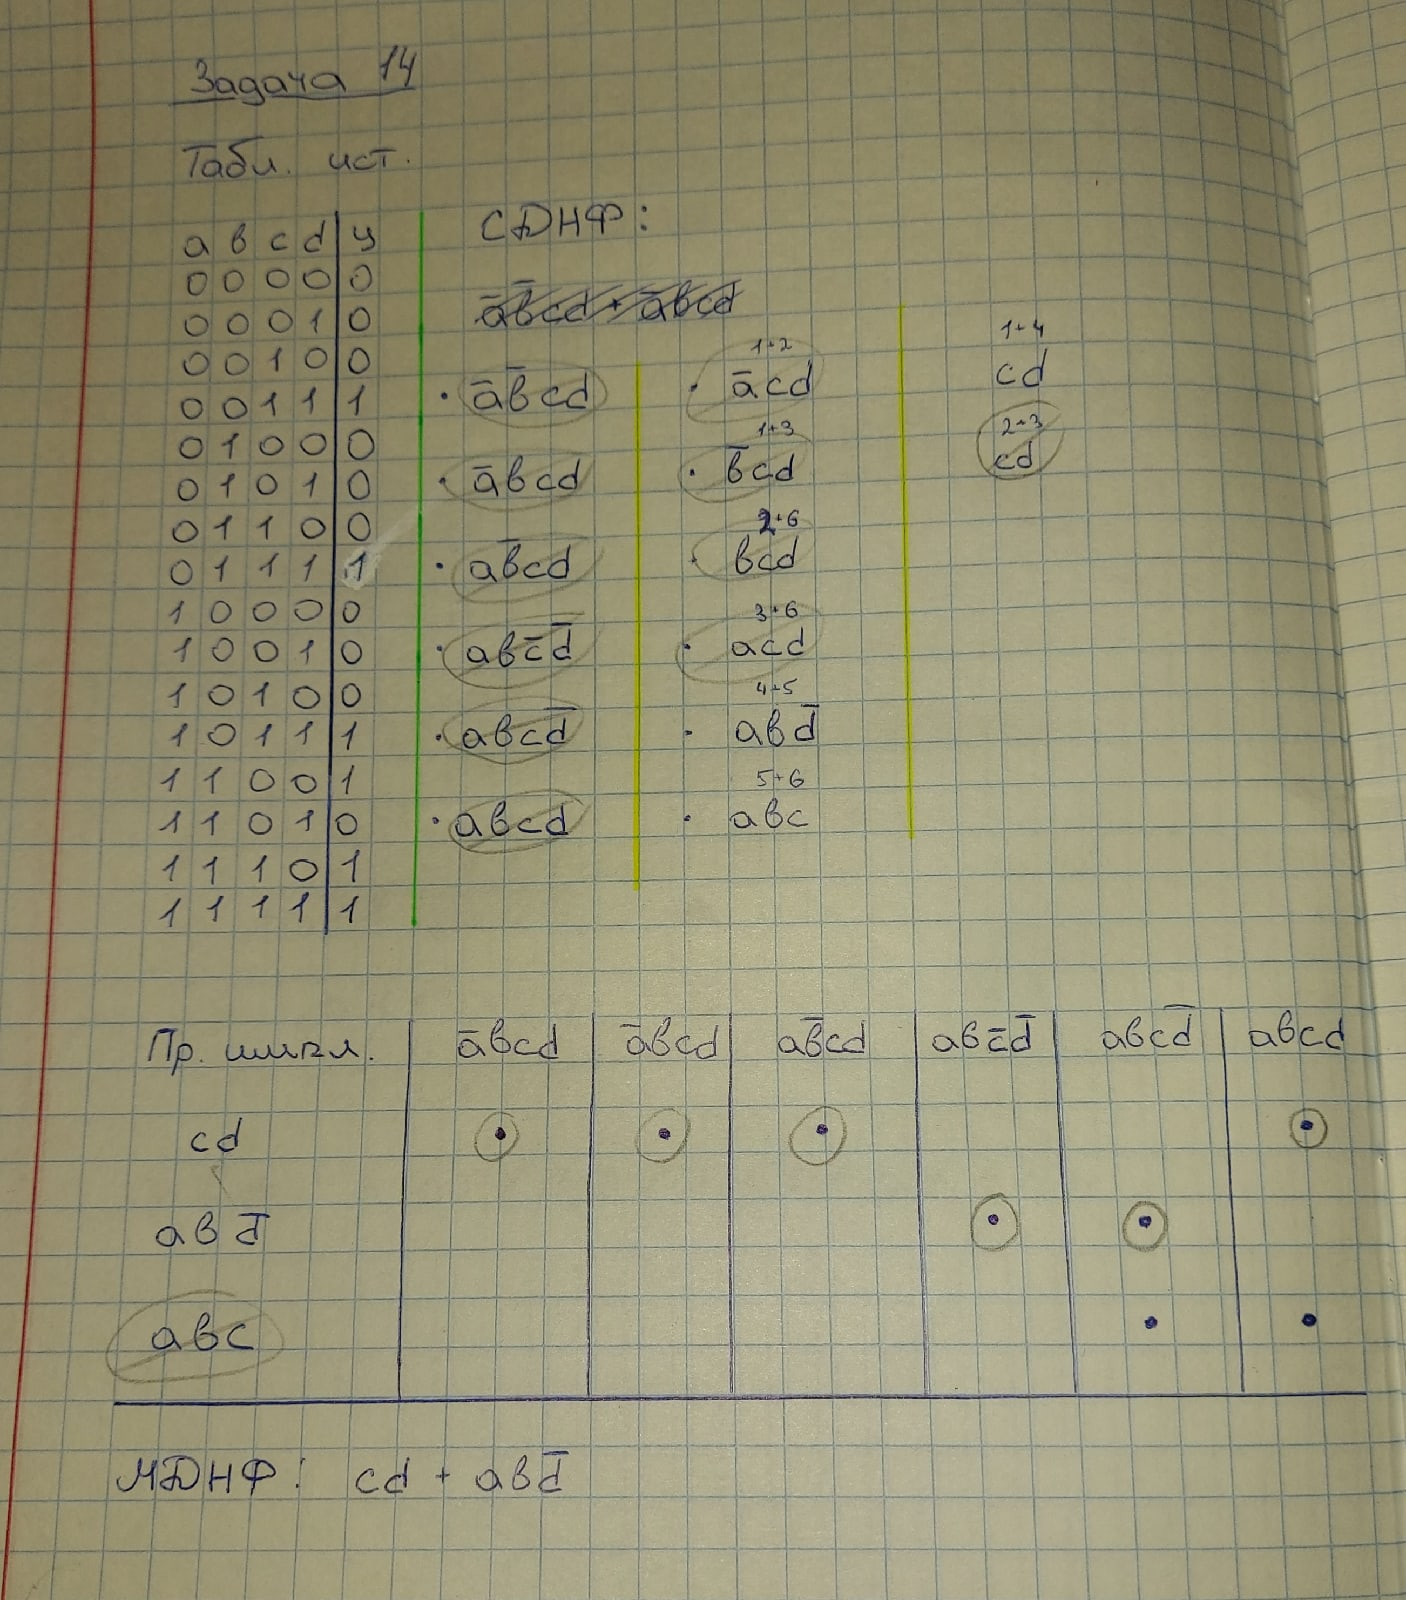 Задача 14
Табл. ист.
СДНФ:
a b c d | y
0 0 0 0 | 0
0 0 0 1 | 0
0 0 1 0 | 0
0 0 1 1 | 1
0 1 0 0 | 0
0 1 0 1 | 0
0 1 1 0 | 0
0 1 1 1 | 1
1 0 0 0 | 0
1 0 0 1 | 0
1 0 1 0 | 0
1 0 1 1 | 1
1 1 0 0 | 1
1 1 0 1 | 0
1 1 1 0 | 1
1 1 1 1 | 1
a̅b̅cd + a̅bcd
· a̅b̅cd
· a̅bcd
· ab̅cd
· abc̅d̅
· abcd̅
· abcd
1+2
· a̅cd
1+3
· b̅cd
2+6
· bcd
3+6
· acd
4+5
· abd̅
5+6
· abc
1+4
cd
2+3
cd
Пр. импл. | a̅bcd | a̅bcd | ab̅cd | abc̅d̅ | abcd̅ | abcd
cd
abd̅
abc
МДНФ: cd + abd̅